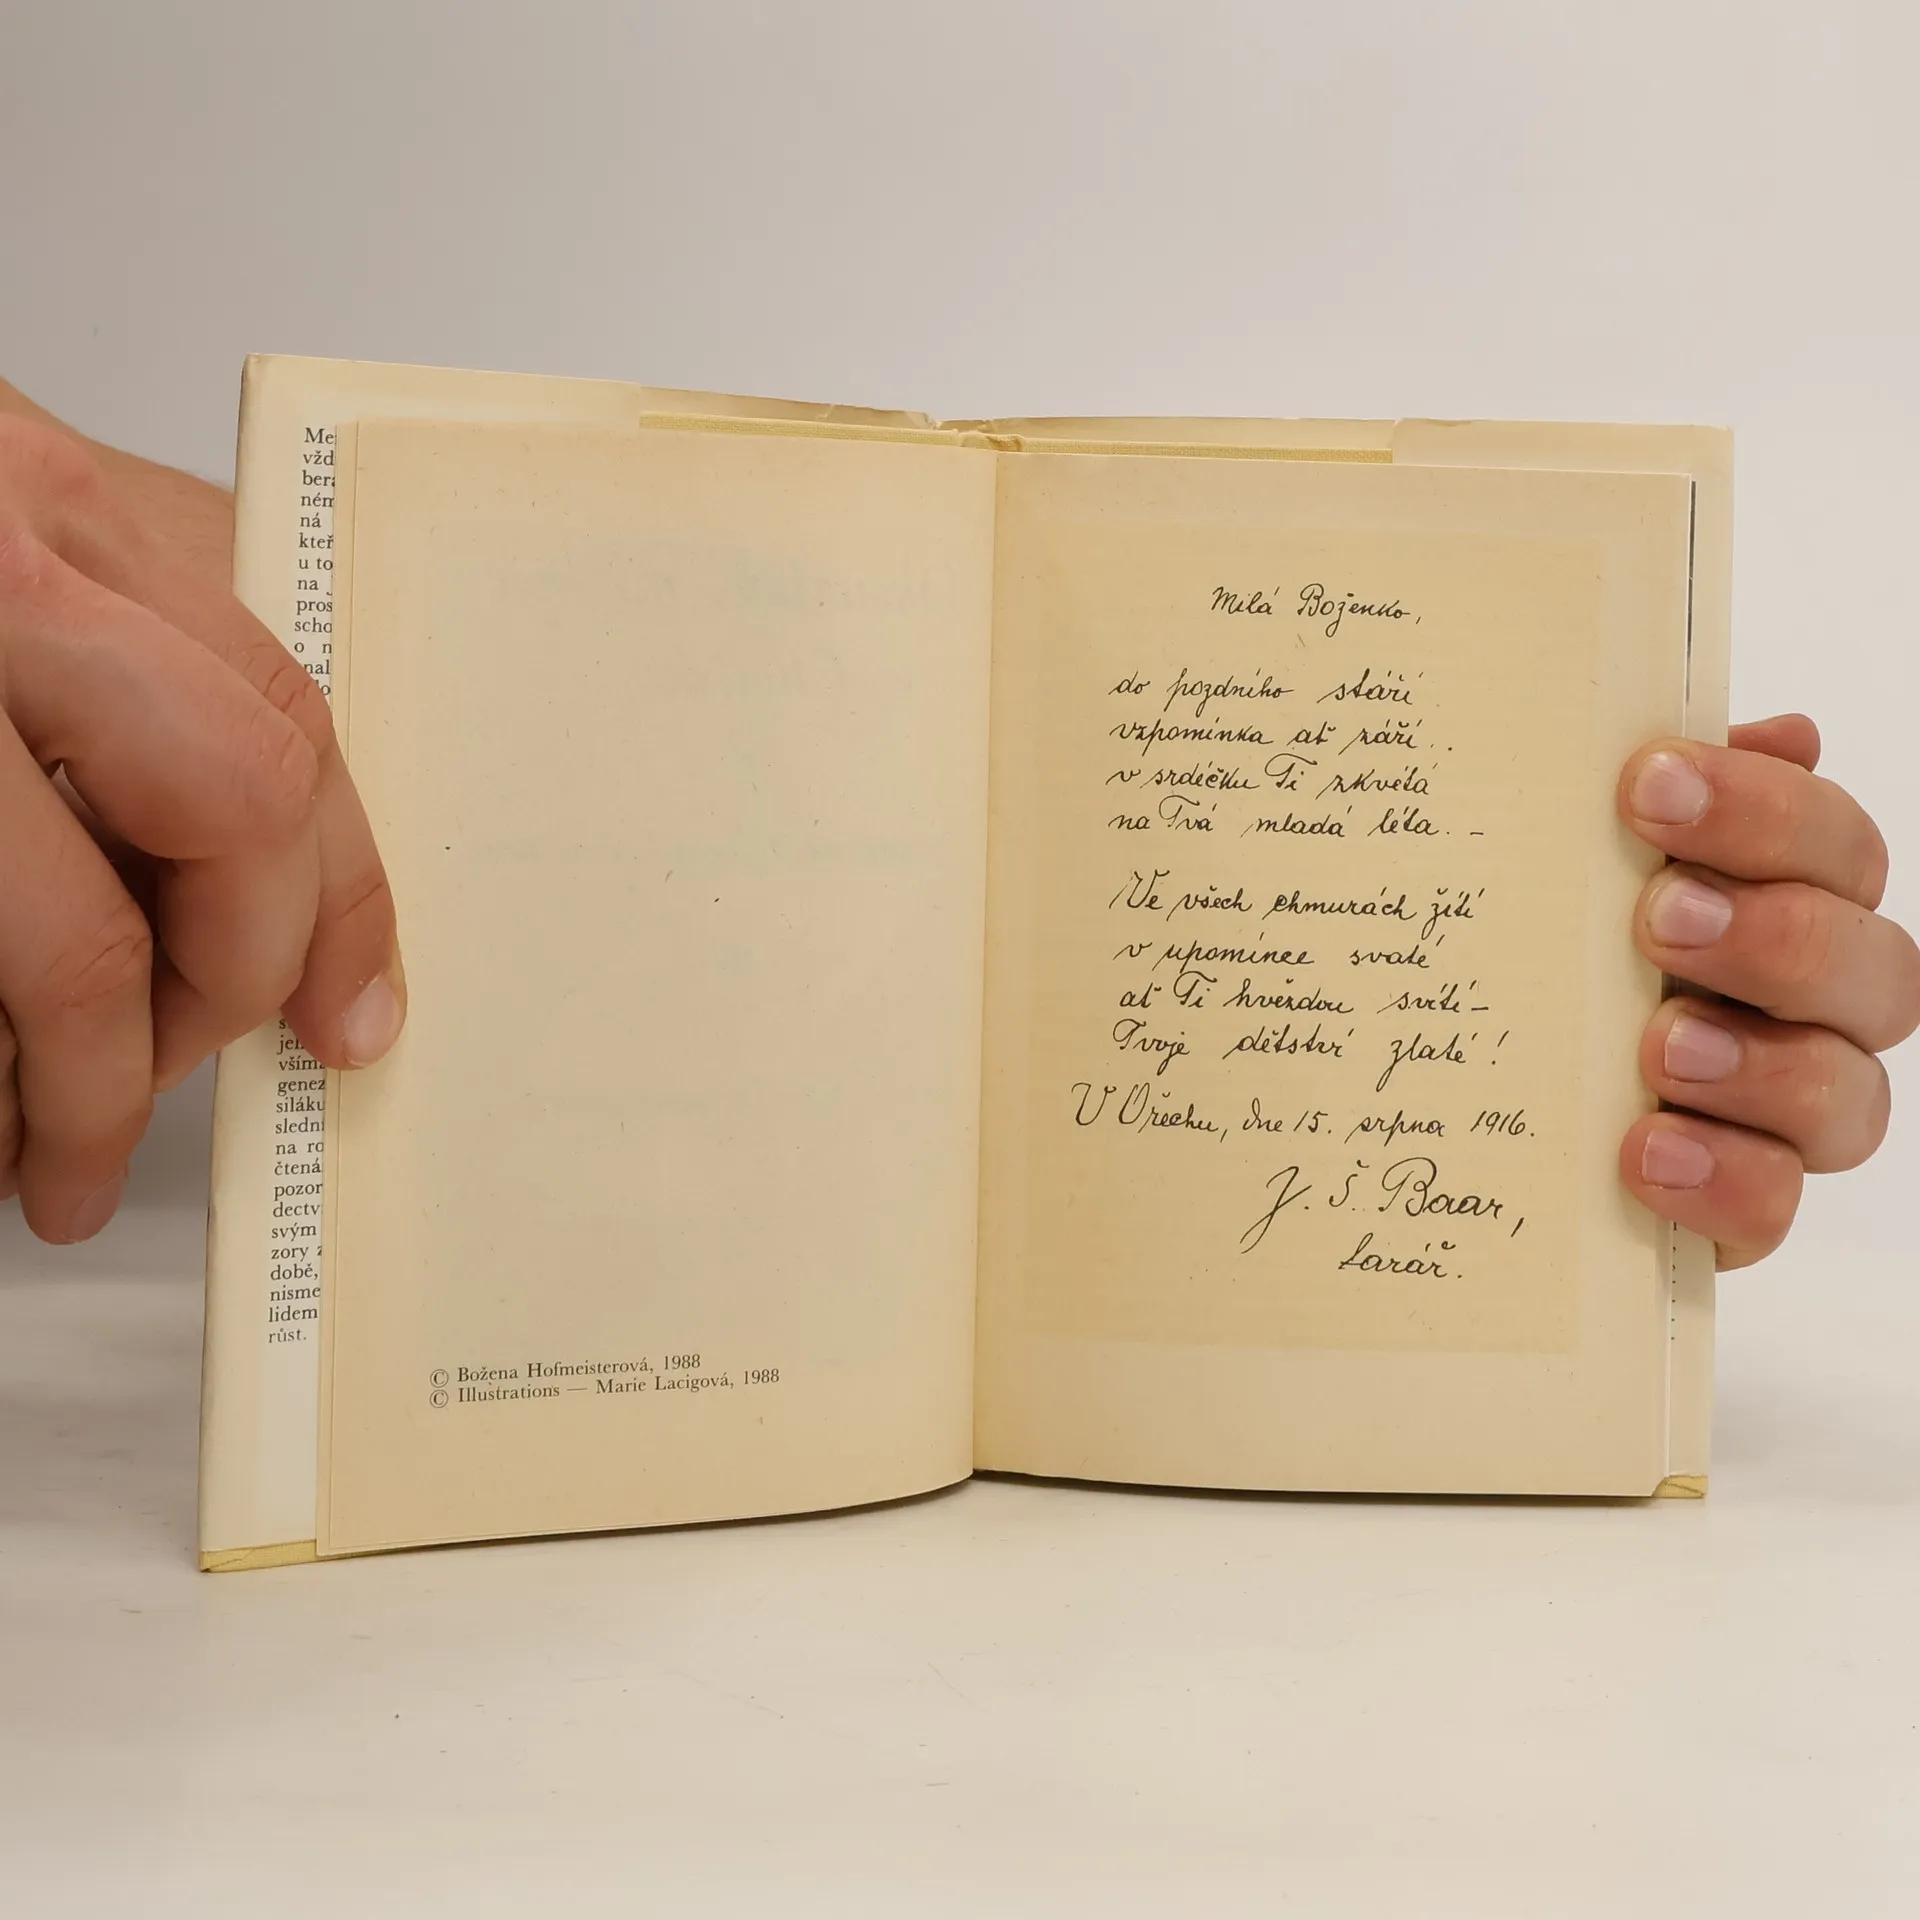 Me
vžd
bera
ném
ná
kteř
u to
na
pros
scho
o n
nal
jeh
vším
genez
siláku
sledn
na ro
čtená
pozor
dectv
svým
zory z
době,
nisme
lidem
růst.
© Božena Hofmeisterová, 1988
© Illustrations — Marie Lacigová, 1988
Milá Boženko,
do pozdního stáří
vzpomínka ať září..
v srdéčku Ti zkvétá
na Tvá mladá léta. –
Ve všech chmurách žití
v upomínce svaté
ať Ti hvězdou svítí –
Tvoje dětství zlaté!
V Ořechu, dne 15. srpna 1916.
J. Š. Baar,
farář.